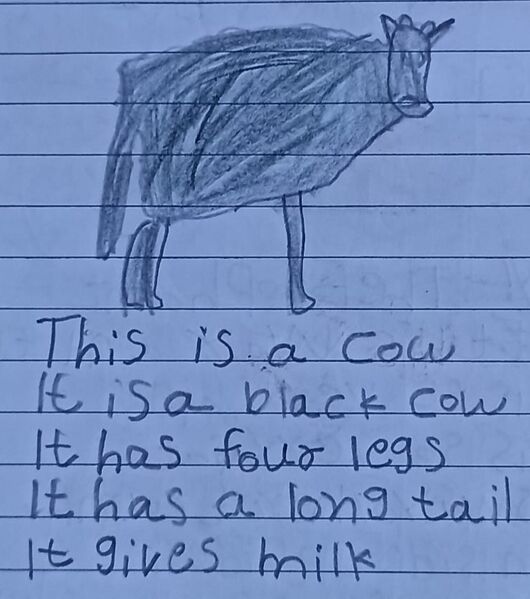 This is a cow
It is a black cow
It has four legs
It has a long tail
It gives milk